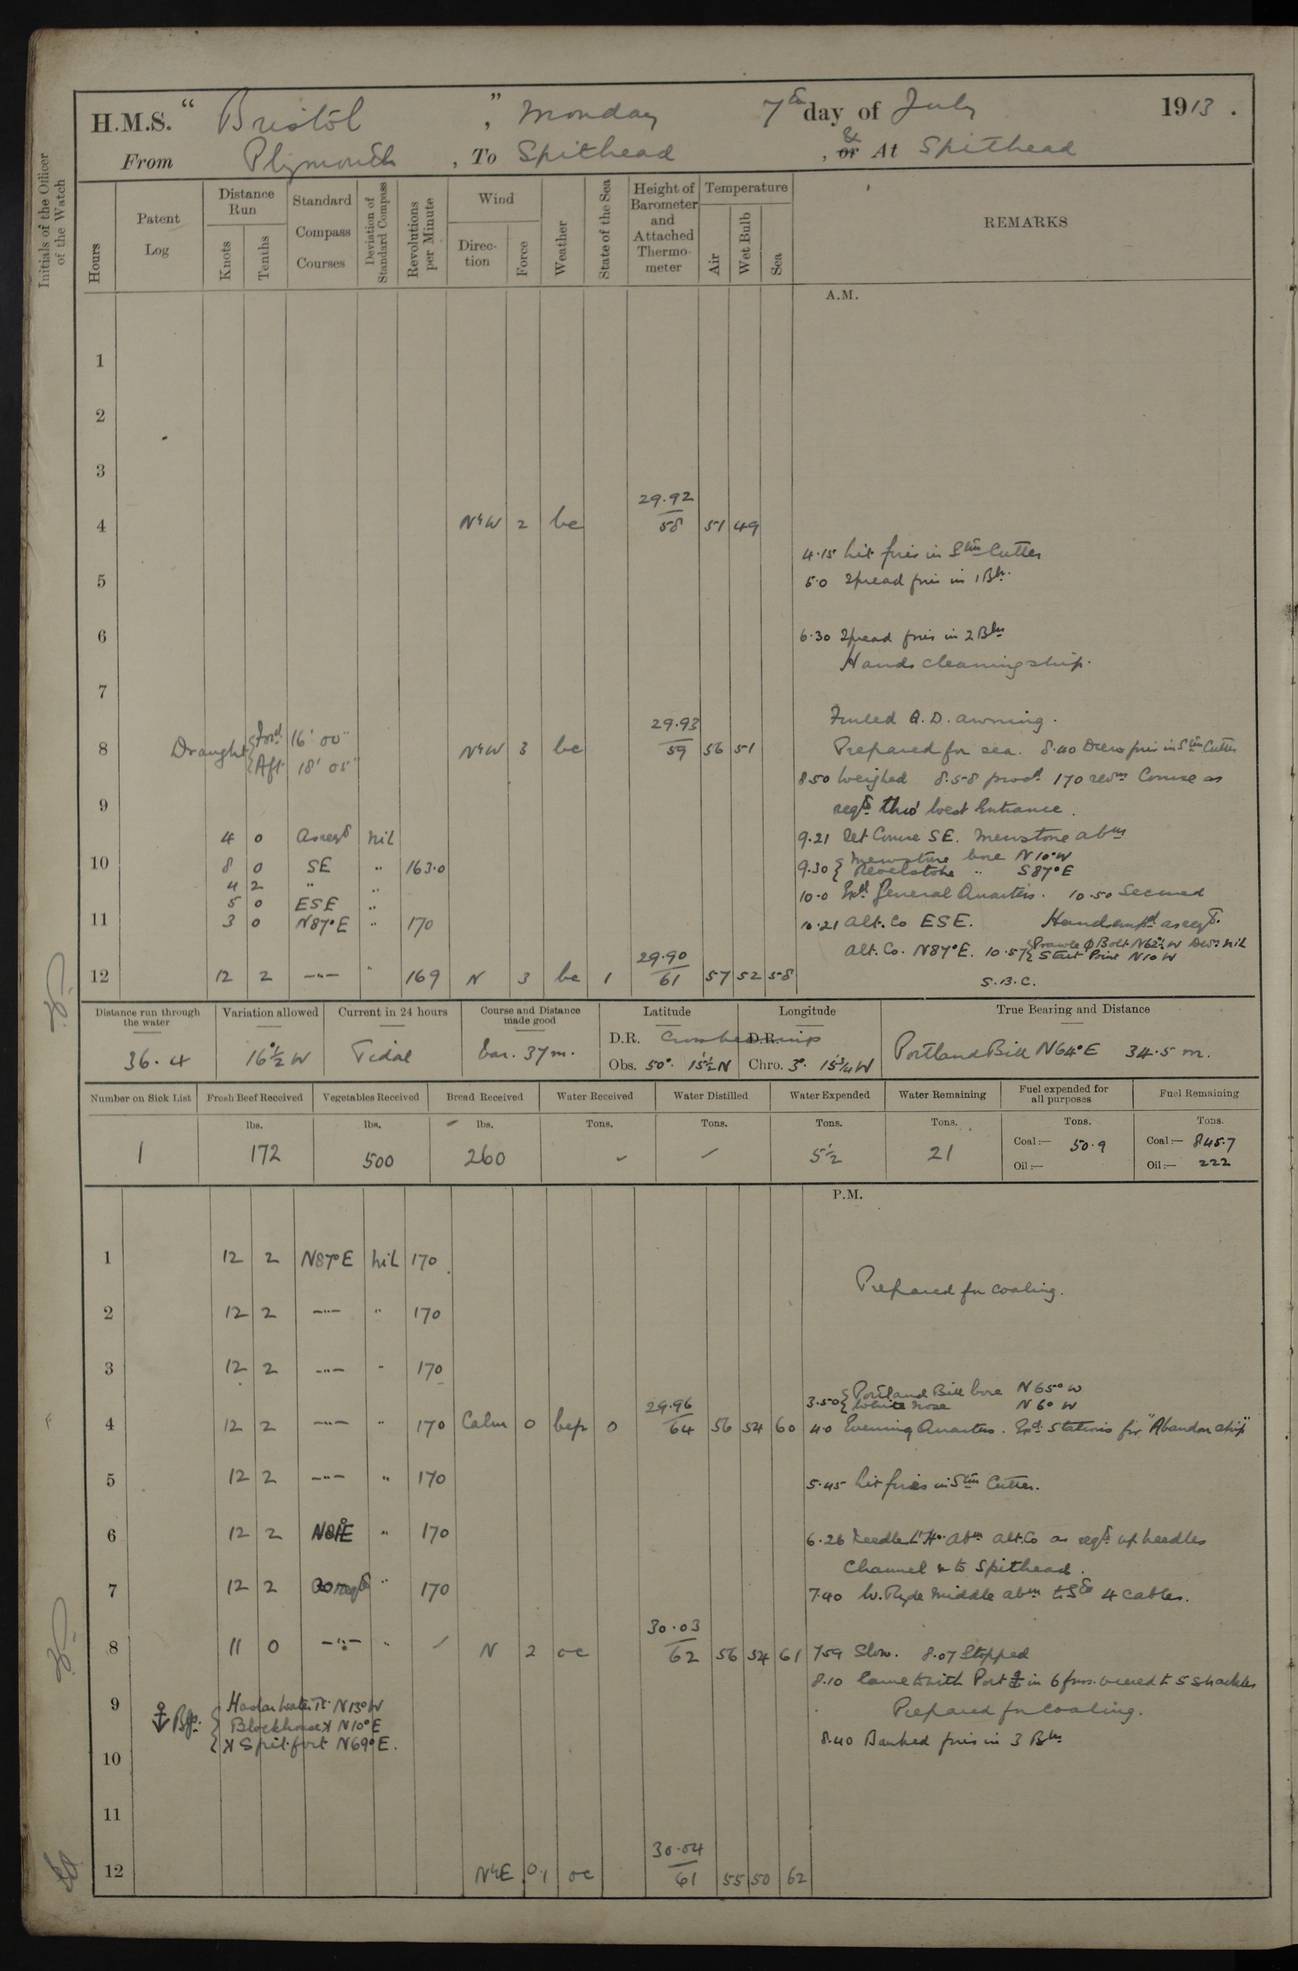 H.M.S. "Bristol", Monday 7th day of July 1913.
From Plymouth, To Spithead, & or At Spithead
Initials of the Officer of the Watch
Hours
Patent Log
Distance Run
Knots
Tenths
Standard Compass Courses
Deviation of Standard Compass
Revolutions per Minute
Wind
Direction
Force
Weather
State of the Sea
Height of Barometer and Attached Thermometer
Temperature
Air
Wet Bulb
Sea
REMARKS
A.M.
1
2
3
29.92
4 NW 2 bc 58 51 49
4.15 Lit fires in Stm Cutter
5
5.0 Spread fires in 1 Blr.
6
6.30 Spread fires in 2 Blrs
Hands cleaning ship.
7
Furled Q.D. awning.
29.93
8 Draught { Ford 16' 00" Aft 18' 05" NW 3 bc 59 56 51
Prepared for sea. 8.40 Drew fires in Stm Cutter
8.50 Weighed 8.58 procd 170 revns Course as
9
reqd thro' West Entrance.
4 0 As reqd nil
9.21 Set Course SE. Mewstone abm
10 8 0 SE " 163.0
9.30 { Mewstone bore N10°W
Revelstoke " S87°E
4 2 " "
10.0 Exd General Quarters. 10.50 Secured
5 0 ESE "
11 3 0 N87°E " 170
10.21 Alt. Co ESE. Hands empd as reqd.
Alt. Co. N87°E. 10.57 { Prawle Bolt N62½W Devn nil
Start Point N10W
29.90
12 12 2 —"— " 169 N 3 bc 1 61 57 52 58
S.B.C.
Distance run through the water
36.4
Variation allowed
16½°W
Current in 24 hours
Tidal
Course and Distance made good
Var. 37m.
Latitude
D.R.
Cross bearings
Obs. 50°. 15½'N
Longitude
D.R.
Chro. 3°. 15¾'W
True Bearing and Distance
Portland Bill N64°E 34.5 m.
Number on Sick List
1
Fresh Beef Received
lbs.
172
Vegetables Received
lbs.
500
Bread Received
lbs.
260
Water Received
Tons.
-
Water Distilled
Tons.
-
Water Expended
Tons.
5½
Water Remaining
Tons.
21
Fuel expended for all purposes
Tons.
Coal:— 50.9
Oil:—
Fuel Remaining
Tons.
Coal:— 845.7
Oil:— 222
P.M.
1 12 2 N87°E nil 170
Prepared for coaling.
2 12 2 —"— " 170
3 12 2 —"— " 170
3.50 { Portland Bill bore N65°W
White Nose N6°W
29.96
4 12 2 —"— " 170 Calm 0 bcp 0 64 56 54 60
4.0 Evening Quarters. Exd Stations for "Abandon Ship"
5 12 2 —"— " 170
5.45 Lit fires in Stm Cutter.
6 12 2 " 170
6.26 Needles Lt Ho. abm alt. Co as reqd up Needles
Channel & to Spithead.
7 12 2 as reqd " 170
7.40 W. Ryde Middle abm to Sd 4 cables.
30.03
8 11 0 —"— " N 2 oc 62 56 54 61
7.59 Slow. 8.07 Stopped
8.10 Came to with Port ⚓ in 6 fms. veered to 5 shackles
9
⚓ Bgs. { Haslar Water Tr. N13°W
Blockhouse N10°E
Spit fort N69°E.
Prepared for coaling.
8.40 Banked fires in 3 Blrs
10
11
30.04
12 NE 0.1 oc 61 55 50 62